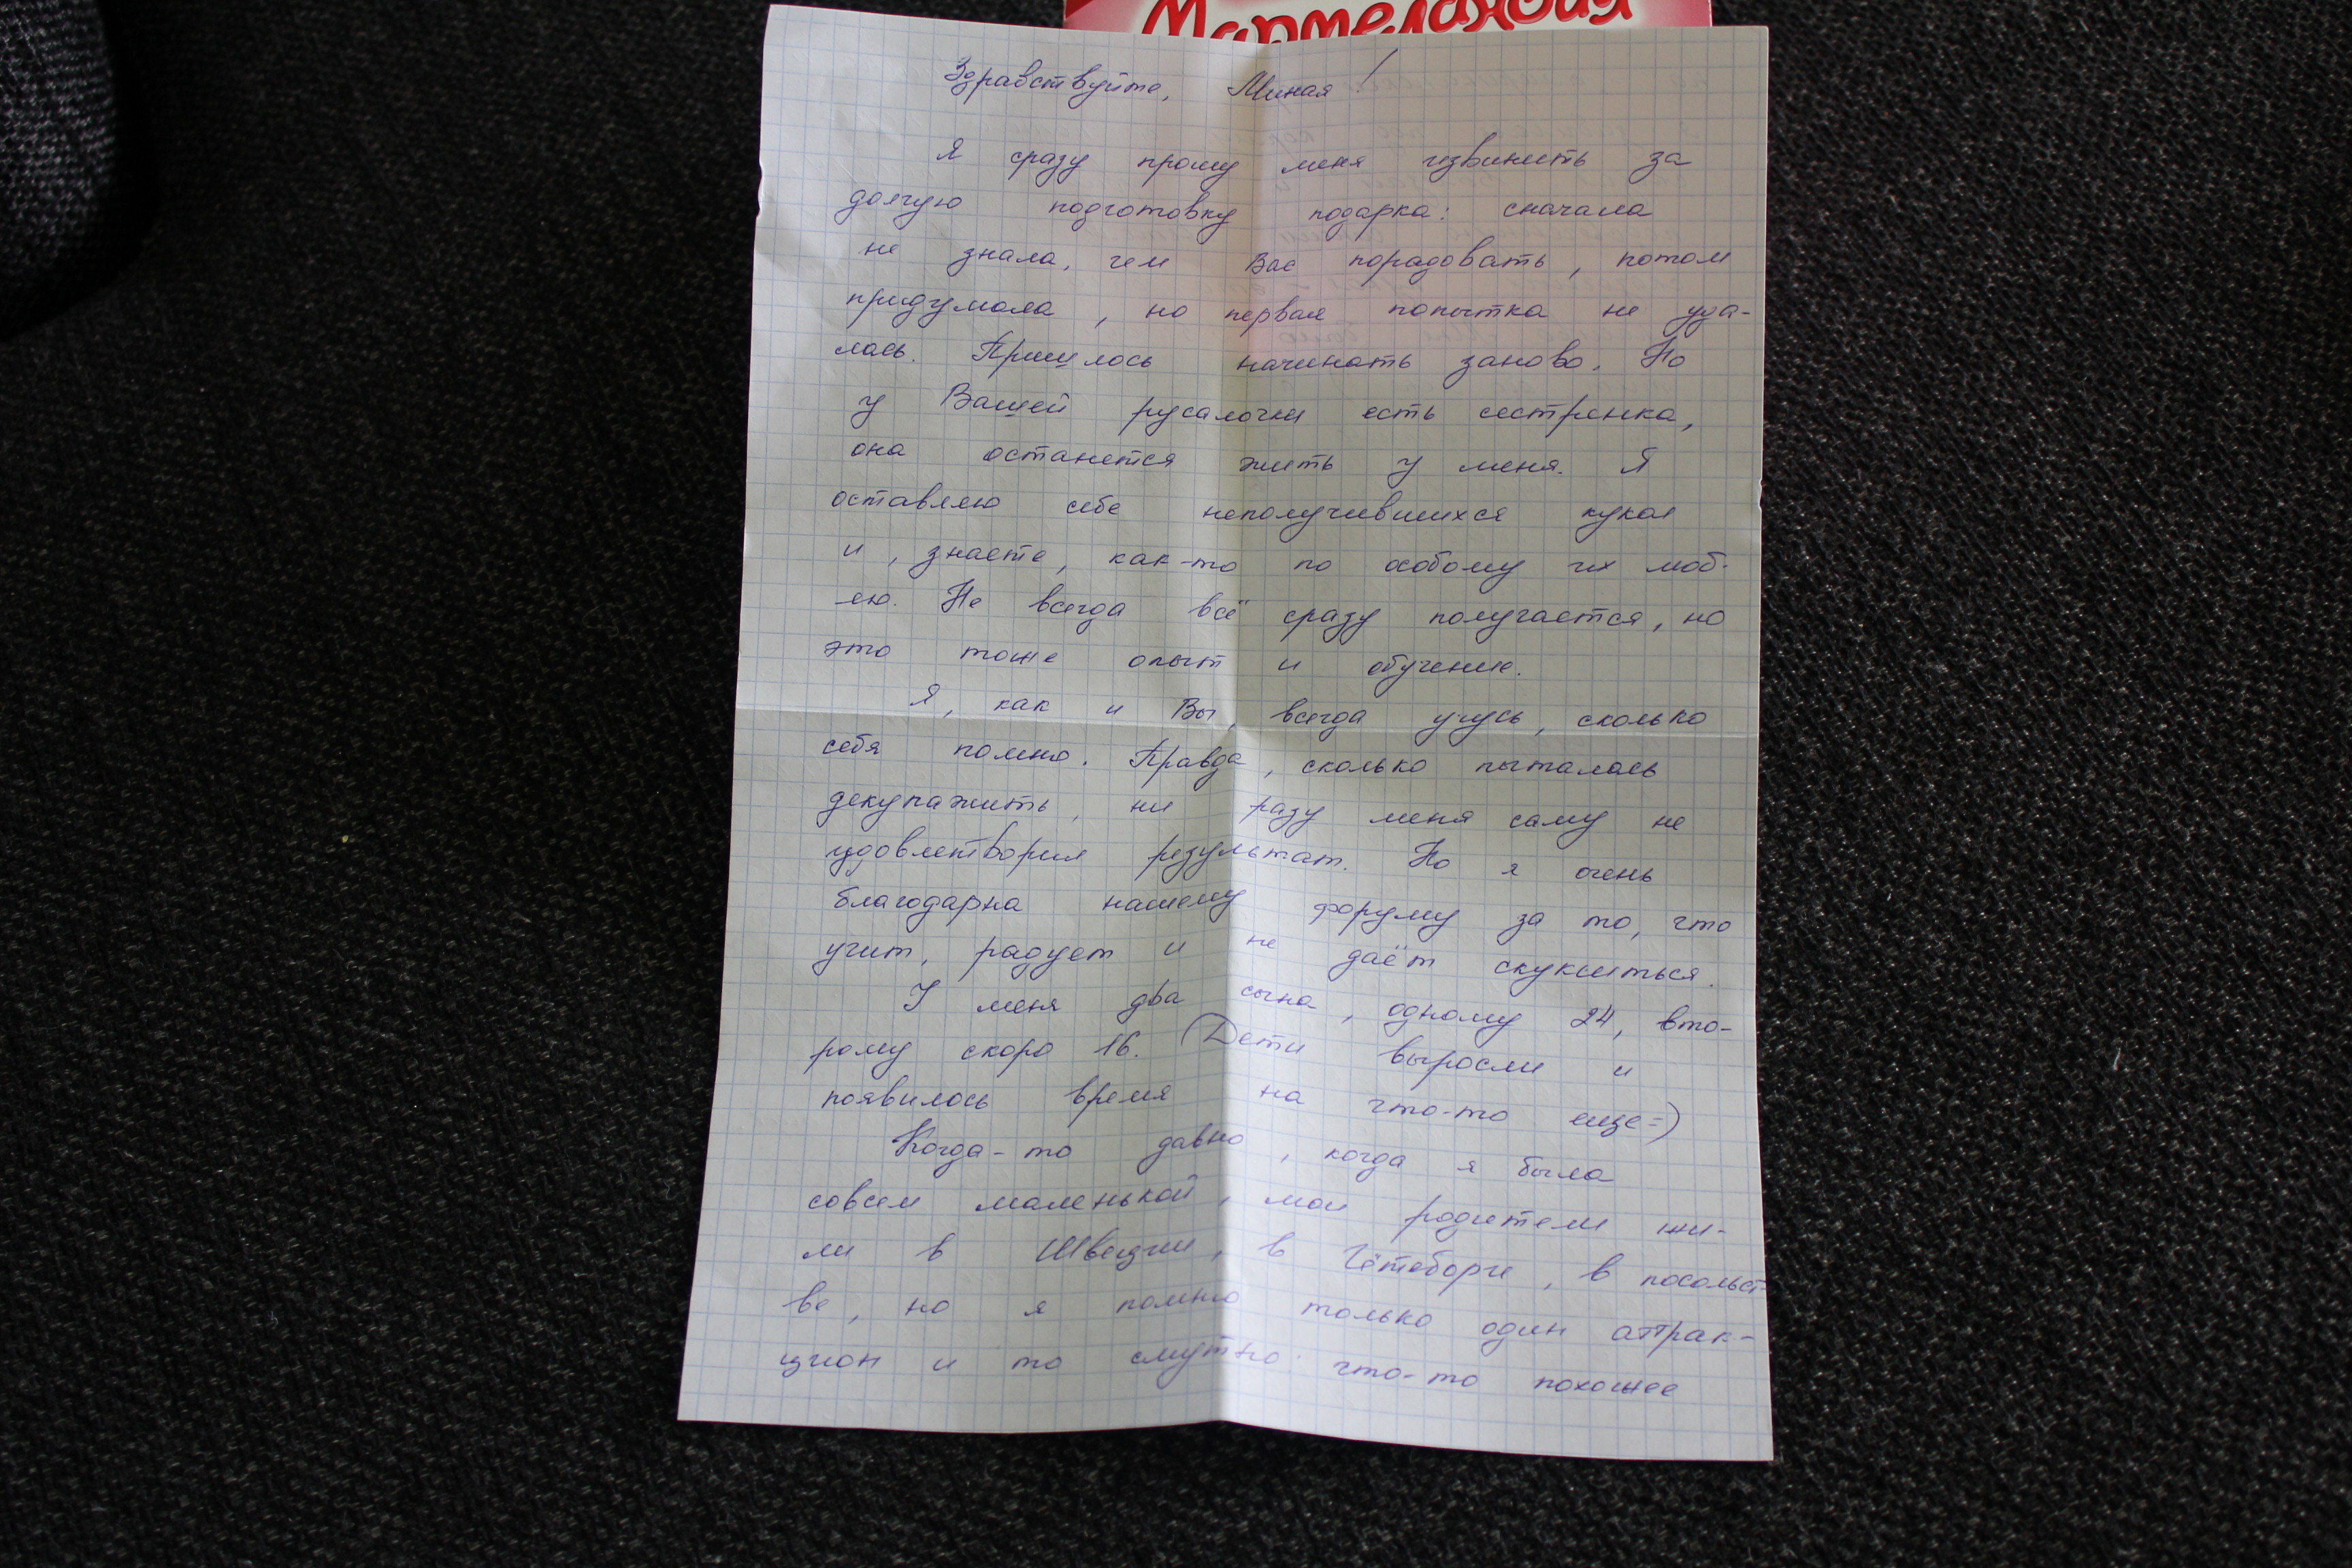 Мармеландия
Здравствуйте, Миная!
Я сразу прошу меня извинить за
долгую подготовку подарка: сначала
не знала, чем Вас порадовать, потом
придумала, но первая попытка не уда-
лась. Пришлось начинать заново. Но
у Вашей русалочки есть сестренка,
она останется жить у меня. Я
оставляю себе неполучившихся кукол
и, знаете, как-то по особому их люб-
лю. Не всегда всё сразу получается, но
это тоже опыт и обучение.
Я, как и Вы, всегда учусь, сколько
себя помню. Правда, сколько пыталась
декупажить, ни разу меня саму не
удовлетворил результат. Но я очень
благодарна нашему форуму за то, что
учит, радует и не даёт скукситься.
У меня два сына, одному 24, вто-
рому скоро 16. Дети выросли и
появилось время на что-то еще =)
Когда-то давно, когда я была
совсем маленькой, мои родители жи-
ли в Швеции, в Гётеборге, в посольст-
ве, но я помню только один аттрак-
цион и то смутно. что-то похожее